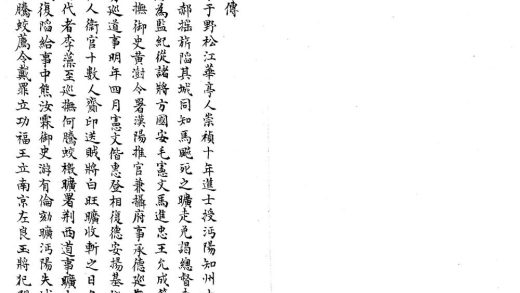 傳
于野松江華亭人崇禎十年進士授沔陽知州
郝搖旂陷其城同知馬飈死之曠走免謁總督
為監紀從諸將方國安毛憲文馬進忠王允成
撫御史黃澍令署漢陽推官兼攝府事承德巡
巡道事明年四月憲文偕惠登相復德安揚基
人衞官十數人齎印送賊將白旺曠收斬之日
代者李藻至巡撫何騰蛟檄曠署荆西道事曠
復陷給事中熊汝霖御史游有倫劾曠沔陽失
騰蛟薦令戴罪立功福王立南京左良玉將犯